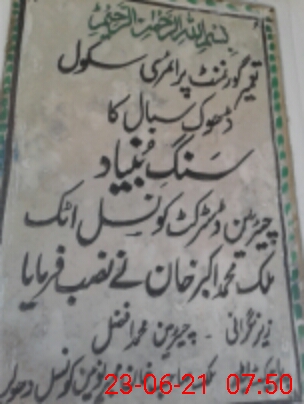 بسم اللہ الرحمٰن الرحیم
تعمیر گورنمنٹ پرائمری سکول
ڈھوک سبال کا
سنگِ بُنیاد
چیئرمین ڈسٹرکٹ کونسل اٹک
ملک محمد اکبر خان نے نصب فرمایا
زیر نگرانی - چیئرمین محمد افضل
کونسل
23-06-21 07:50